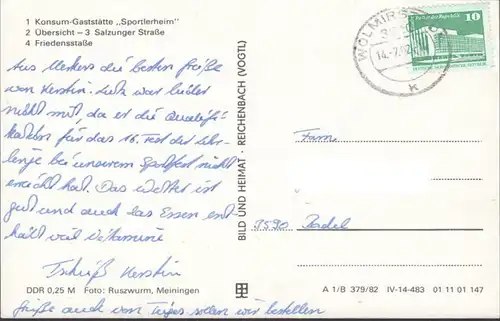 1 Konsum-Gaststätte „Sportlerheim"
2 Übersicht – 3 Salzunger Straße
4 Friedensstraße
Aus Merkers die besten Grüße
von Kerstin. Lutz war leider
nicht mit, da er die Qualifi-
kation für das 16. Fest der
bei unserem Sportfest nicht
erreicht hat. Das Wetter ist
gut und auch das Essen ent-
hält viel Vitamine
Tschüß Kerstin
DDR 0,25 M Foto: Ruszwurm, Meiningen
Grüße auch von sollen wir bestellen
BILD UND HEIMAT · REICHENBACH (VOGTL)
WOLMIRS
k
10
Fam.
3590 Badel
A 1/B 379/82 IV-14-483 01 11 01 147